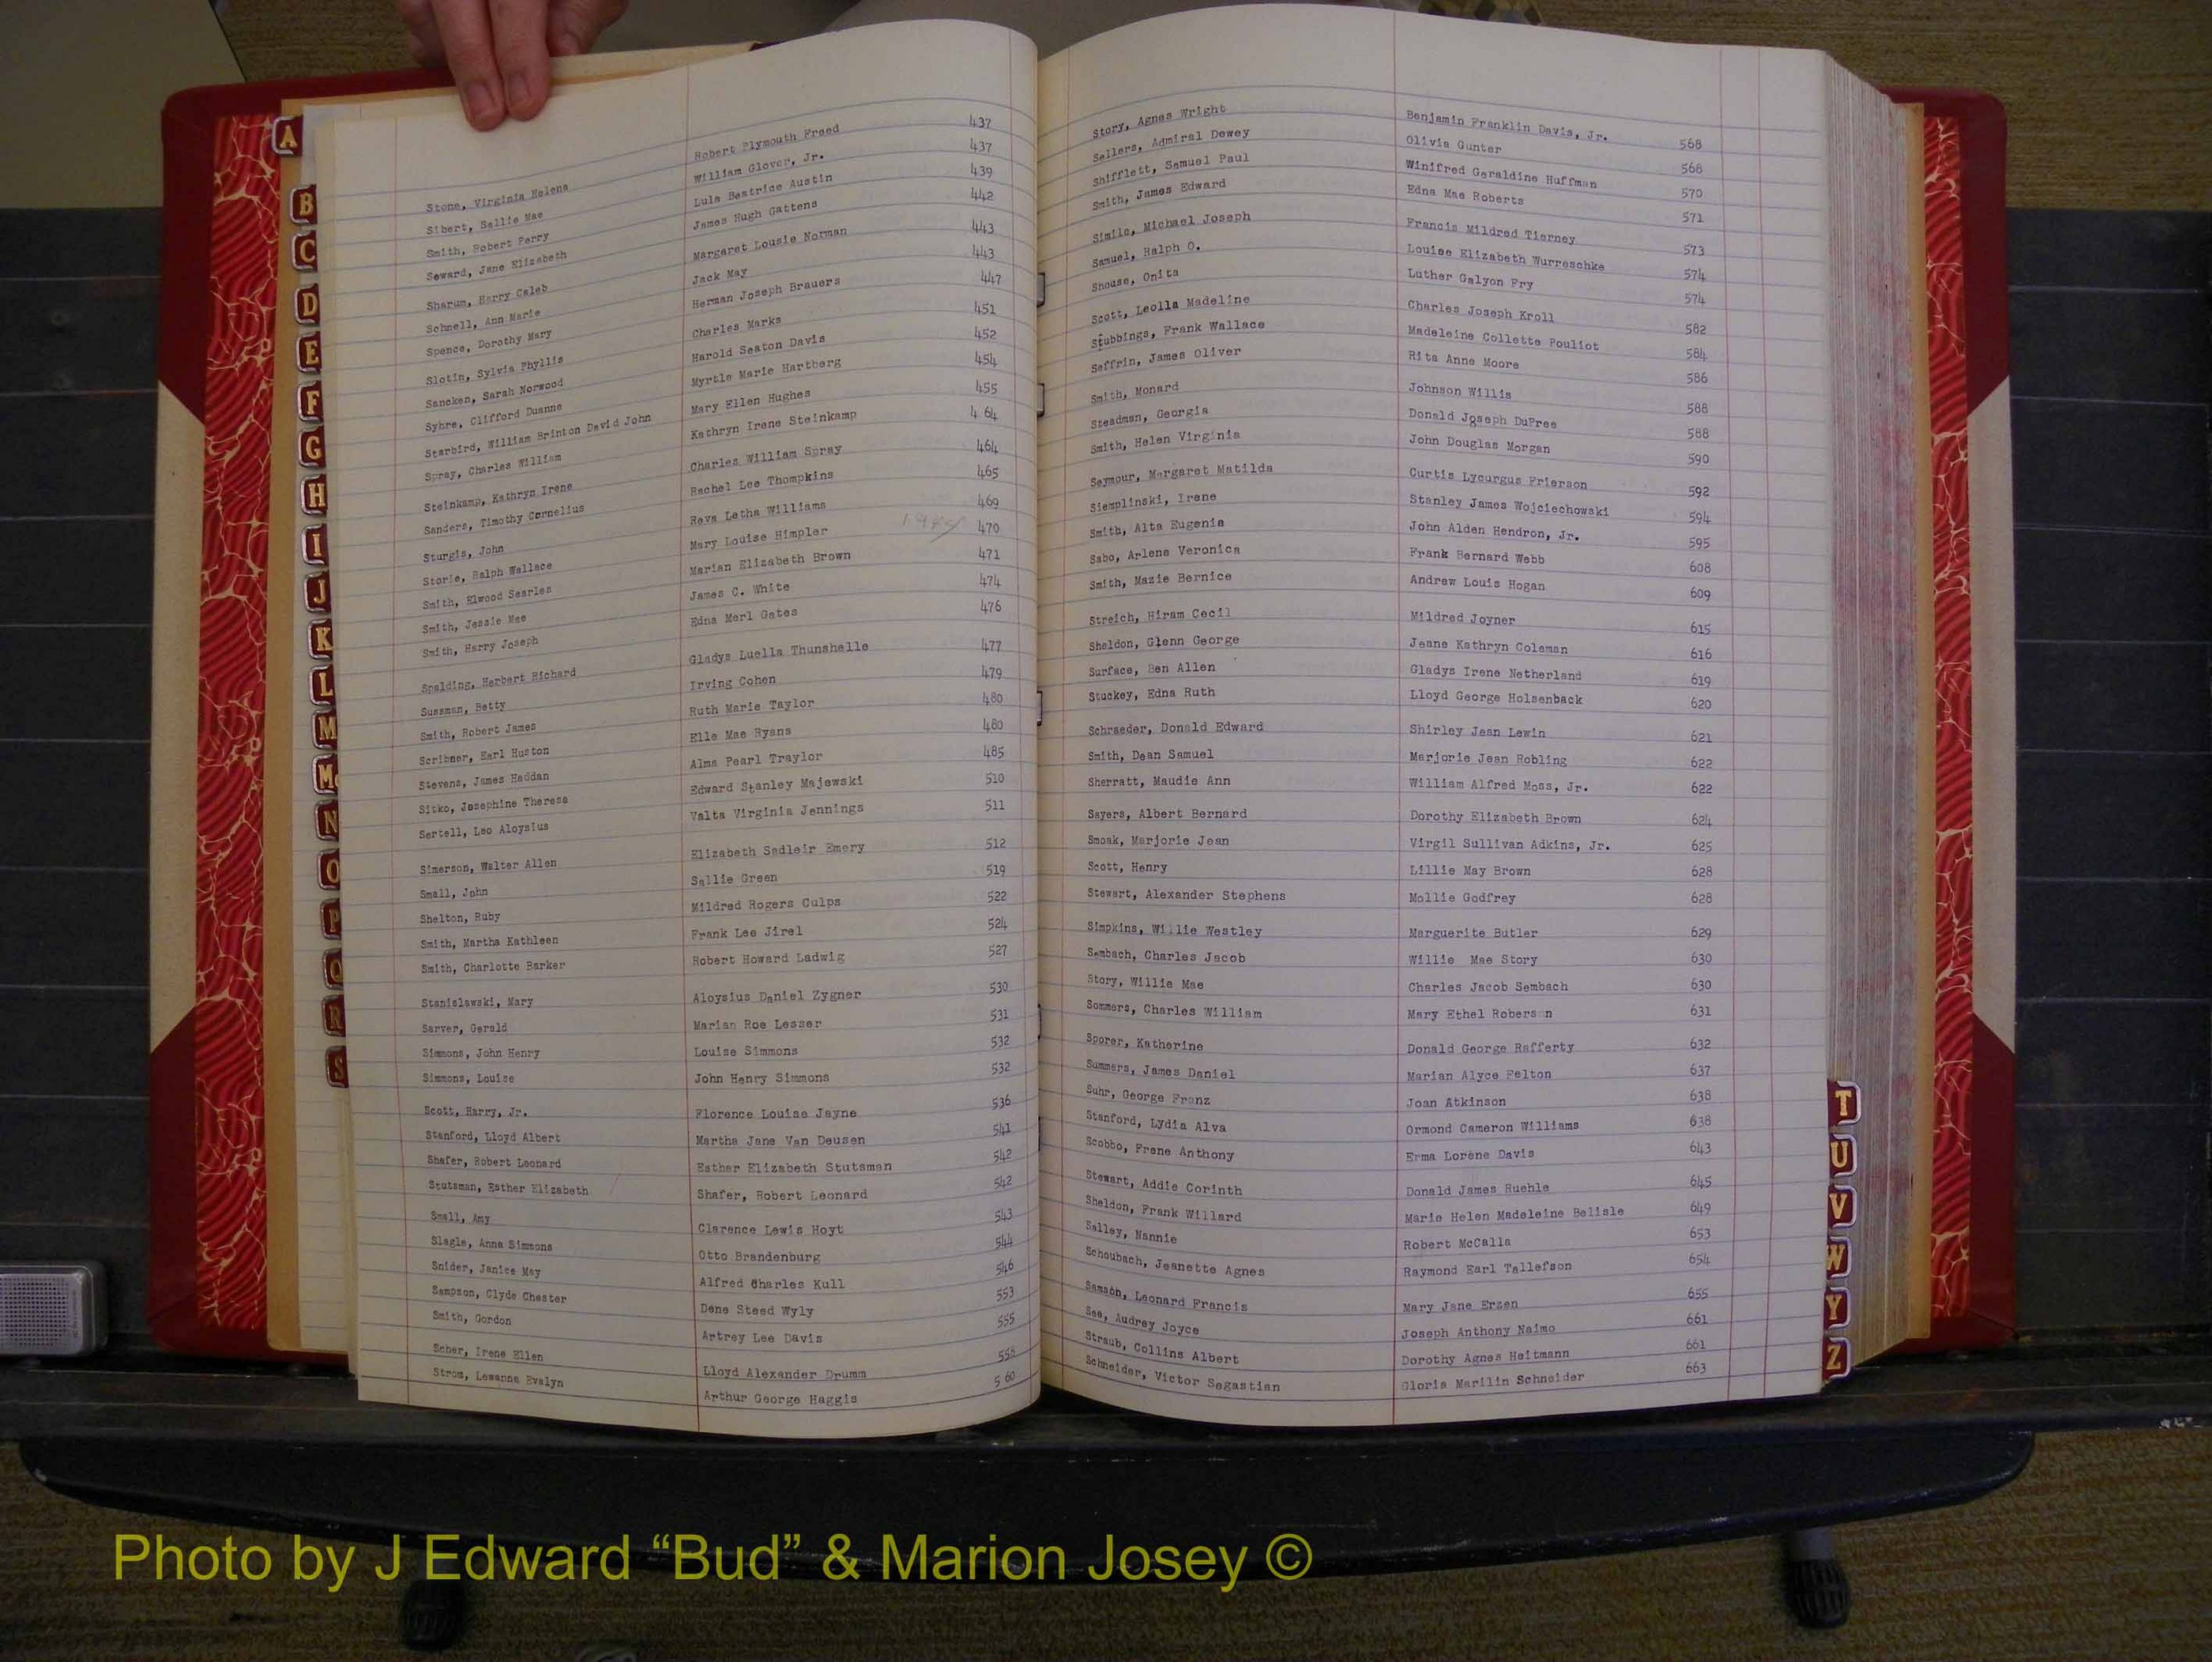 A
B
C
D
E
F
G
H
I
J
K
L
M
Mc
N
O
P
Q
R
S
Stone, Virginia Helena Robert Plymouth Freed 437
Sibert, Sallie Mae William Glover, Jr. 437
Smith, Robert Perry Lula Beatrice Austin 439
Seward, Jane Elizabeth James Hugh Gattens 442
Sharum, Harry Caleb Margaret Lousie Norman 443
Schnell, Ann Marie Jack May 443
Spence, Dorothy Mary Herman Joseph Brauers 447
Slotin, Sylvia Phyllis Charles Marks 451
Sancken, Sarah Norwood Harold Seaton Davis 452
Syhre, Clifford Duanne Myrtle Marie Hartberg 454
Starbird, William Brinton David John Mary Ellen Hughes 455
Spray, Charles William Kathryn Irene Steinkamp 464
Steinkamp, Kathryn Irene Charles William Spray 464
Sanders, Timothy Cornelius Rachel Lee Thompkins 465
Sturgis, John Reva Letha Williams 469
Storie, Ralph Wallace Mary Louise Himpler 470
Smith, Elwood Searles Marian Elizabeth Brown 471
Smith, Jessie Mae James C. White 474
Smith, Harry Joseph Edna Merl Gates 476
Spalding, Herbert Richard Gladys Luella Thunshelle 477
Sussman, Betty Irving Cohen 479
Smith, Robert James Ruth Marie Taylor 480
Scribner, Earl Huston Elle Mae Ryans 480
Stevens, James Haddan Alma Pearl Traylor 485
Sitko, Josephine Theresa Edward Stanley Majewski 510
Sertell, Leo Aloysius Valta Virginia Jennings 511
Simerson, Walter Allen Elizabeth Sadleir Emery 512
Small, John Sallie Green 519
Shelton, Ruby Mildred Rogers Culps 522
Smith, Martha Kathleen Frank Lee Jirel 524
Smith, Charlotte Barker Robert Howard Ladwig 527
Stanislawski, Mary Aloysius Daniel Zygner 530
Sarver, Gerald Marian Roe Lesser 531
Simmons, John Henry Louise Simmons 532
Simmons, Louise John Henry Simmons 532
Scott, Harry, Jr. Florence Louise Jayne 536
Stanford, Lloyd Albert Martha Jane Van Deusen 541
Shafer, Robert Leonard Esther Elizabeth Stutsman 542
Stutsman, Esther Elizabeth Shafer, Robert Leonard 542
Small, Amy Clarence Lewis Hoyt 543
Slagle, Anna Simmons Otto Brandenburg 544
Snider, Janice May Alfred Charles Kull 546
Sampson, Clyde Chester Dene Steed Wyly 553
Smith, Gordon Artrey Lee Davis 555
Scher, Irene Ellen Lloyd Alexander Drumm 558
Strom, Lewanna Evalyn Arthur George Haggis 560
Story, Agnes Wright Benjamin Franklin Davis, Jr. 568
Sellers, Admiral Dewey Olivia Gunter 568
Shifflett, Samuel Paul Winifred Geraldine Huffman 570
Smith, James Edward Edna Mae Roberts 571
Simile, Michael Joseph Francis Mildred Tierney 573
Samuel, Ralph O. Louise Elizabeth Wurreschke 574
Shouse, Onita Luther Galyon Fry 574
Scott, Leolla Madeline Charles Joseph Kroll 582
Stubbings, Frank Wallace Madeleine Collette Pouliot 584
Seffrin, James Oliver Rita Anne Moore 586
Smith, Monard Johnson Willis 588
Steadman, Georgia Donald Joseph DuPree 588
Smith, Helen Virginia John Douglas Morgan 590
Seymour, Margaret Matilda Curtis Lycurgus Frierson 592
Siemplinski, Irene Stanley James Wojciechowski 594
Smith, Alta Eugenia John Alden Hendron, Jr. 595
Sabo, Arlene Veronica Frank Bernard Webb 608
Smith, Mazie Bernice Andrew Louis Hogan 609
Streich, Hiram Cecil Mildred Joyner 615
Sheldon, Glenn George Jeane Kathryn Coleman 616
Surface, Ben Allen Gladys Irene Netherland 619
Stuckey, Edna Ruth Lloyd George Holsenback 620
Schraeder, Donald Edward Shirley Jean Lewin 621
Smith, Dean Samuel Marjorie Jean Robling 622
Sherratt, Maudie Ann William Alfred Moss, Jr. 622
Sayers, Albert Bernard Dorothy Elizabeth Brown 624
Smoak, Marjorie Jean Virgil Sullivan Adkins, Jr. 625
Scott, Henry Lillie May Brown 628
Stewart, Alexander Stephens Mollie Godfrey 628
Simpkins, Willie Westley Marguerite Butler 629
Sembach, Charles Jacob Willie Mae Story 630
Story, Willie Mae Charles Jacob Sembach 630
Sommers, Charles William Mary Ethel Roberson 631
Sporer, Katherine Donald George Rafferty 632
Summers, James Daniel Marian Alyce Felton 637
Suhr, George Franz Joan Atkinson 638
Stanford, Lydia Alva Ormond Cameron Williams 638
Scobbo, Frene Anthony Erma Lorene Davis 643
Stewart, Addie Corinth Donald James Ruehle 645
Sheldon, Frank Willard Marie Helen Madeleine Belisle 649
Salley, Nannie Robert McCalla 653
Schoubach, Jeanette Agnes Raymond Earl Tallefson 654
Samson, Leonard Francis Mary Jane Erzen 655
See, Audrey Joyce Joseph Anthony Naimo 661
Straub, Collins Albert Dorothy Agnes Heitmann 661
Schneider, Victor Segastian Gloria Marilin Schneider 663
T
U
V
W
Y
Z
Photo by J Edward “Bud” & Marion Josey ©